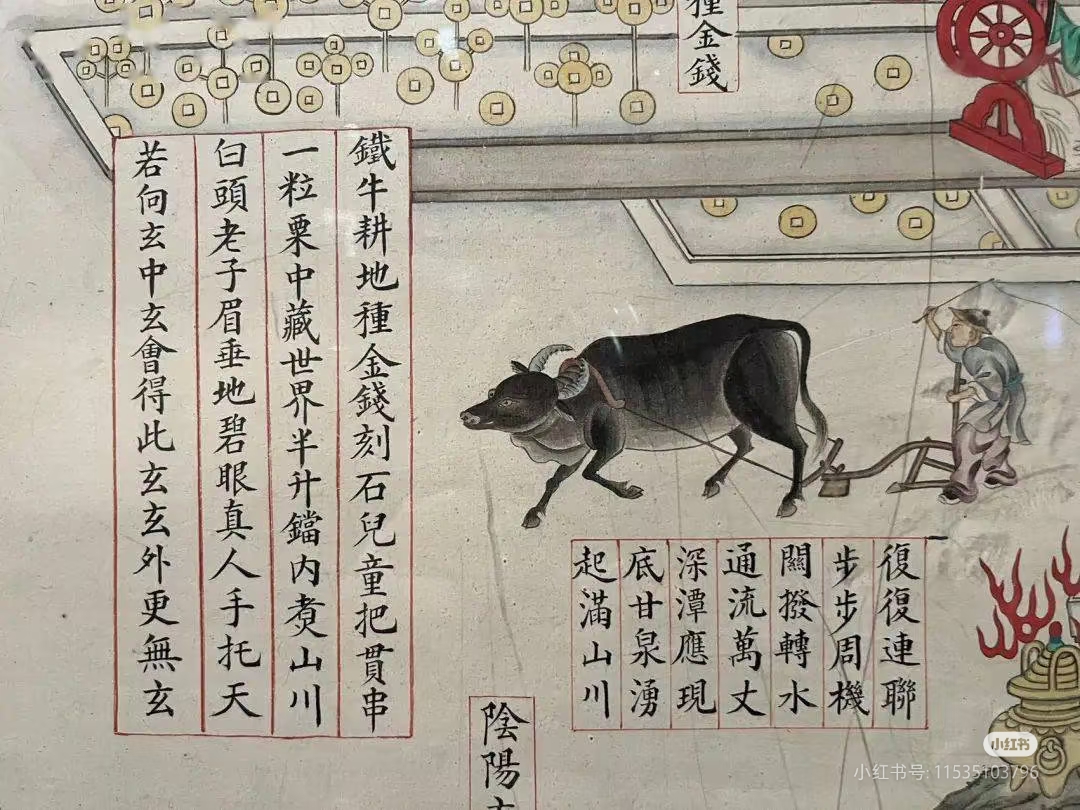 種金錢
鐵牛耕地種金錢刻石兒童把貫串
一粒粟中藏世界半升鐺內煑山川
白頭老子眉垂地碧眼真人手托天
若向玄中玄會得此玄玄外更無玄
復復連聯
步步周機
關撥轉水
通流萬丈
深潭應現
底甘泉湧
起滿山川
陰陽
小红书
小红书号: 11535103796